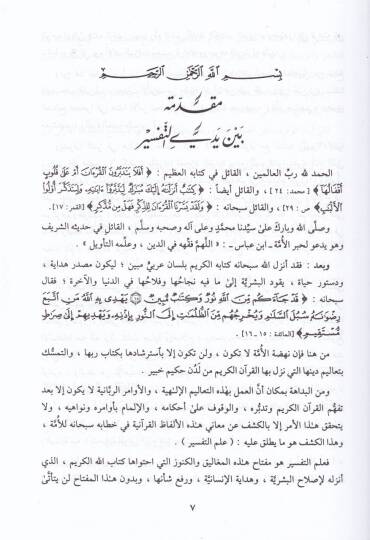 بِسْمِ اللَّهِ الرَّحْمَٰنِ الرَّحِيمِ
مقدّمة
بَيْنَ يَدَيِ التَّفْسِيرِ
الحمد لله ربّ العالمين ، القائل في كتابه العظيم : ﴿ أَفَلَا يَتَدَبَّرُونَ الْقُرْءَانَ أَمْ عَلَىٰ قُلُوبٍ
أَقْفَالُهَا ﴾ [محمد: ٢٤] ، والقائل أيضاً : ﴿ كِتَٰبٌ أَنزَلْنَٰهُ إِلَيْكَ مُبَٰرَكٌ لِّيَدَّبَّرُوٓا۟ ءَايَٰتِهِۦ وَلِيَتَذَكَّرَ أُو۟لُوا۟
الْأَلْبَٰبِ ﴾ [ص: ٢٩] ، والقائل سبحانه : ﴿ وَلَقَدْ يَسَّرْنَا الْقُرْءَانَ لِلذِّكْرِ فَهَلْ مِن مُّدَّكِرٍ ﴾ [القمر: ١٧] .
وصلّى الله وبارك على سيّدنا محمّدٍ وعلى آله وصحبه وسلّم ، القائل في حديثه الشريف
وهو يدعو لحبر الأمّة ـ ابن عباس ـ : « اللهمّ فقّهه في الدين ، وعلّمه التأويل » .
وبعد : فقد أنزل الله سبحانه كتابه الكريم بلسان عربيّ مبين ؛ ليكون مصدر هداية ،
ودستور حياة ، يقود البشريّة إلىٰ ما فيه نجاحُها وفلاحُها في الدنيا والآخرة ؛ فقال
سبحانه : ﴿ قَدْ جَآءَكُم مِّنَ اللَّهِ نُورٌ وَكِتَٰبٌ مُّبِينٌ ۝ يَهْدِى بِهِ اللَّهُ مَنِ اتَّبَعَ
رِضْوَٰنَهُۥ سُبُلَ السَّلَٰمِ وَيُخْرِجُهُم مِّنَ الظُّلُمَٰتِ إِلَى النُّورِ بِإِذْنِهِۦ وَيَهْدِيهِمْ إِلَىٰ صِرَٰطٍ
مُّسْتَقِيمٍ ﴾ [المائدة: ١٥ ـ ١٦] .
من هنا فإن نهضة الأمّة لا تكون ، ولن تكون إلا بٱسترشادها بكتاب ربها ، والتمسُّك
بتعاليم دينها التي نزل بها القرآن الكريم من لَدُن حكيم خبير .
ومن البداهة بمكان أنَّ العمل بهٰذه التعاليم الإلٰهية ، والأوامر الربّانية لا يكون إلا بعد
تفهُّم القرآن الكريم وتدبُّره ، والوقوف علىٰ أحكامه ، والإلمام بأوامره ونواهيه ، ولا
يتحقق هٰذا الأمر إلا بالكشف عن معاني هٰذه الألفاظ القرآنية في خطابه سبحانه للأمّة ،
وهٰذا الكشف هو ما يطلق عليه : ( علم التفسير ) .
فعلم التفسير هو مفتاح هٰذه المغاليق والكنوز التي احتواها كتاب الله الكريم ، الذي
أنزله لإصلاح البشريّة ، وهداية الإنسانيّة ، ورفع شأنها ، وبدون هٰذا المفتاح لن يتأتَّىٰ
٧